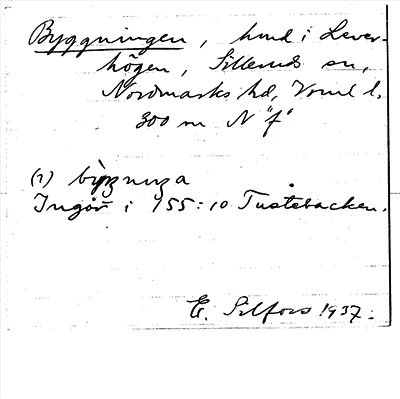 Byggningen, hmd i Lever-
högen, Sillerud sn,
Nordmarks hd, Vrml l.
300 m N "f"
(1) bỳggnırga
Ingår i 155:10 Tustebacken.
E. Silfors 1937.